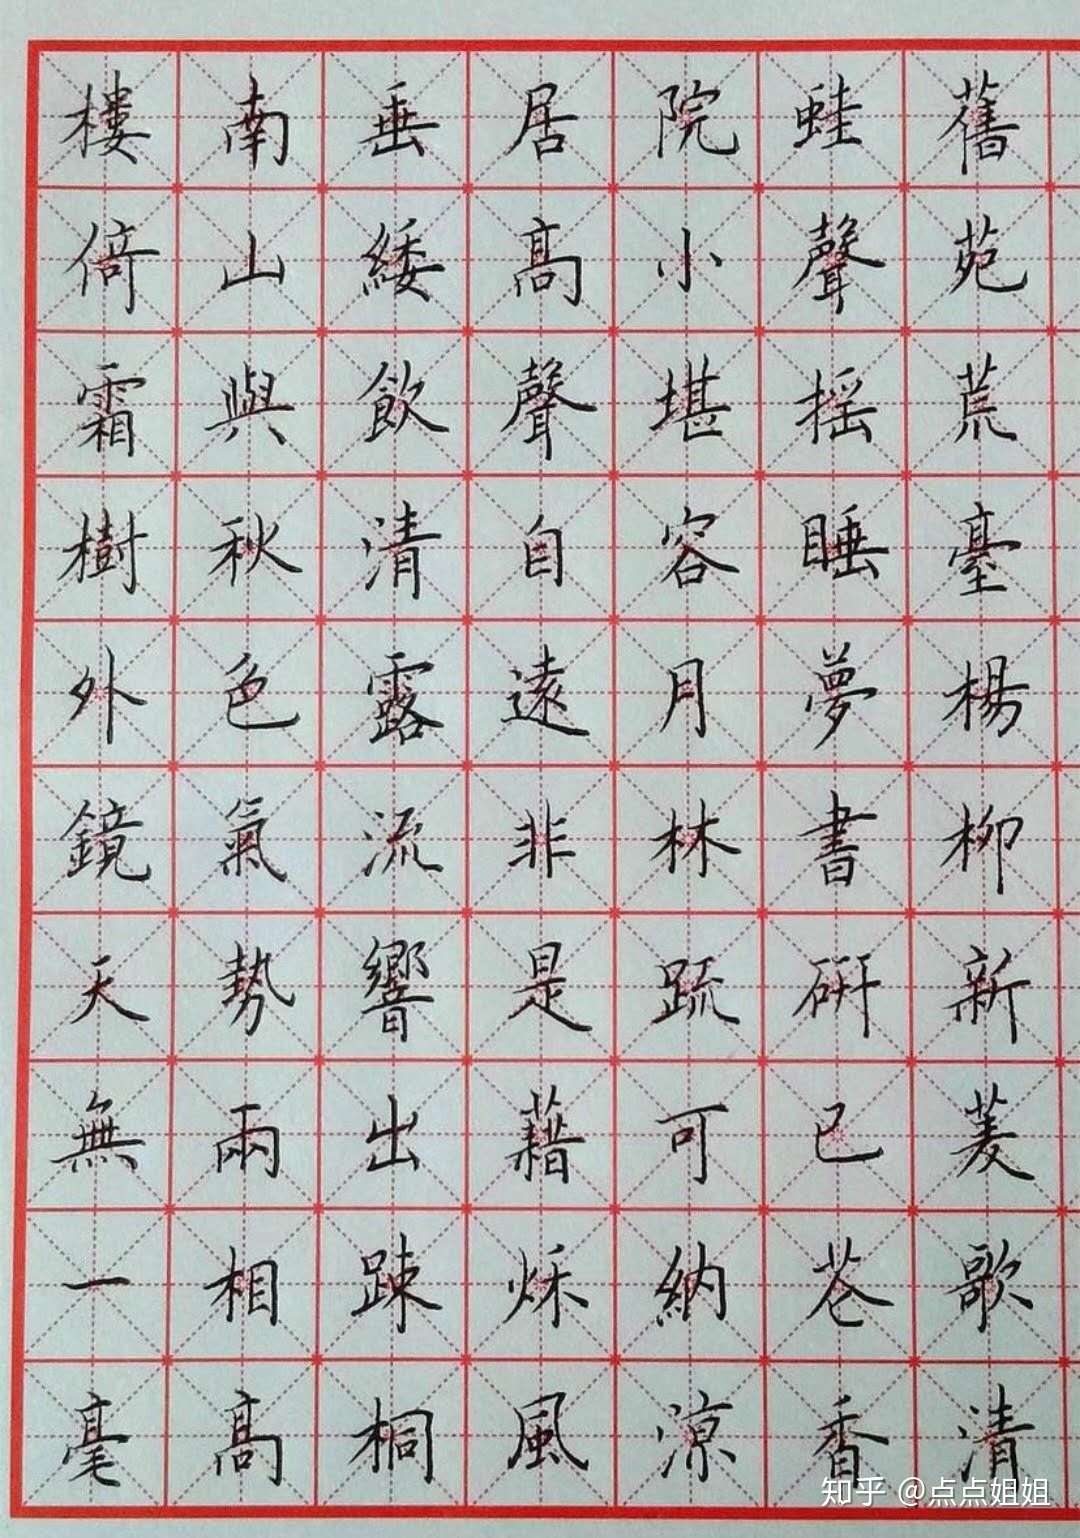 舊苑荒臺楊柳新菱歌清
蛙聲摇睡夢書硏已香
院小堪容月林䟽可納涼
居髙聲自遠非是藉秌風
垂緌飲清露流響出踈桐
南山與秋色氣勢兩相髙
樓倚霜樹外鏡天無一毫
知乎 @点点姐姐